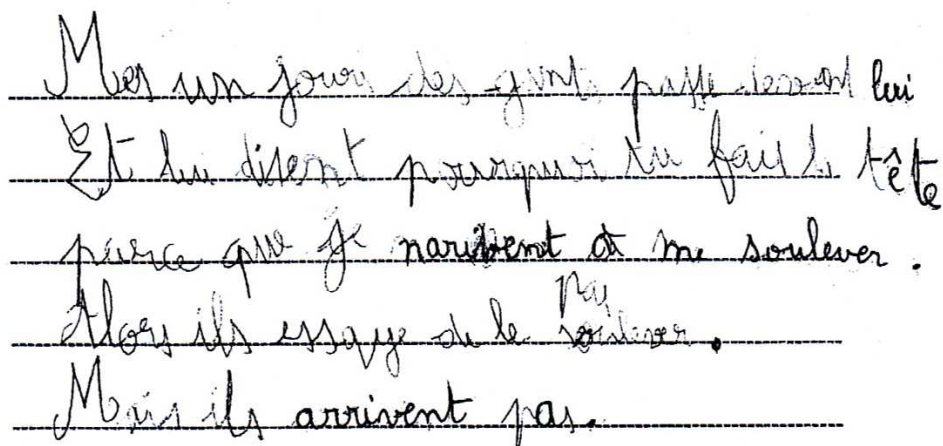 Mes un jour des gents passe devant lui
Et lui disent pourquoi tu fais la tête
parce que je narivent a me soulever.
pas
Alors ils essaye de le soulever.
Mais ils arrivent pas.